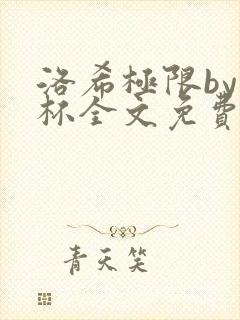 洛希極限by
杯全文免費
青天笑